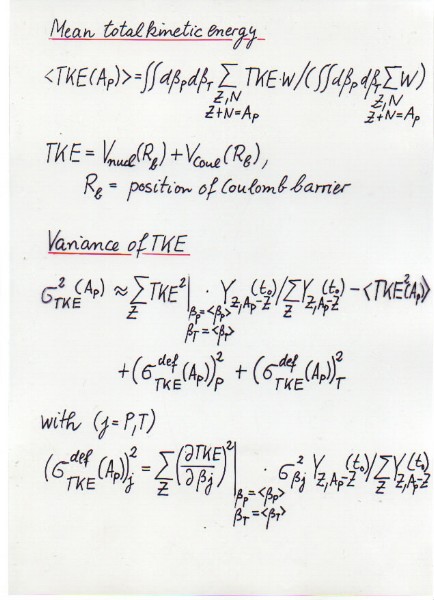 Mean total kinetic energy
<TKE(A_P)> = ∬dβ_P dβ_T ∑_{Z,N Z+N=A_P} TKE·W / (∬dβ_P dβ_T ∑_{Z,N Z+N=A_P} W)
TKE = V_nucl(R_b) + V_Coul(R_b),
R_b = position of Coulomb barrier
Variance of TKE
σ²_TKE(A_P) ≈ ∑_Z TKE²|_{β_P=<β_P> β_T=<β_T>} · Y_{Z,A_P-Z}(t_0) / ∑_Z Y_{Z,A_P-Z}(t_0) - <TKE²(A_P)>
+ (σ^def_TKE(A_P))²_P + (σ^def_TKE(A_P))²_T
with (j = P,T)
(σ^def_TKE(A_P))²_j = ∑_Z (∂TKE/∂β_j)²|_{β_P=<β_P> β_T=<β_T>} · σ²_{β_j} Y_{Z,A_P-Z}(t_0) / ∑_Z Y_{Z,A_P-Z}(t_0)